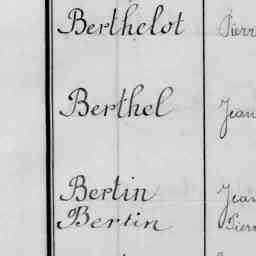 Berthelot Pierr
Berthel Jean
Bertin Jean
Bertin Pierr